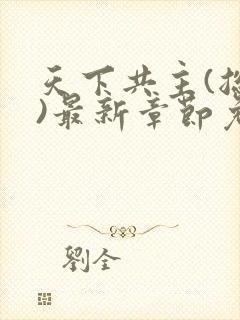 天下共主(
)最新章節
劉全